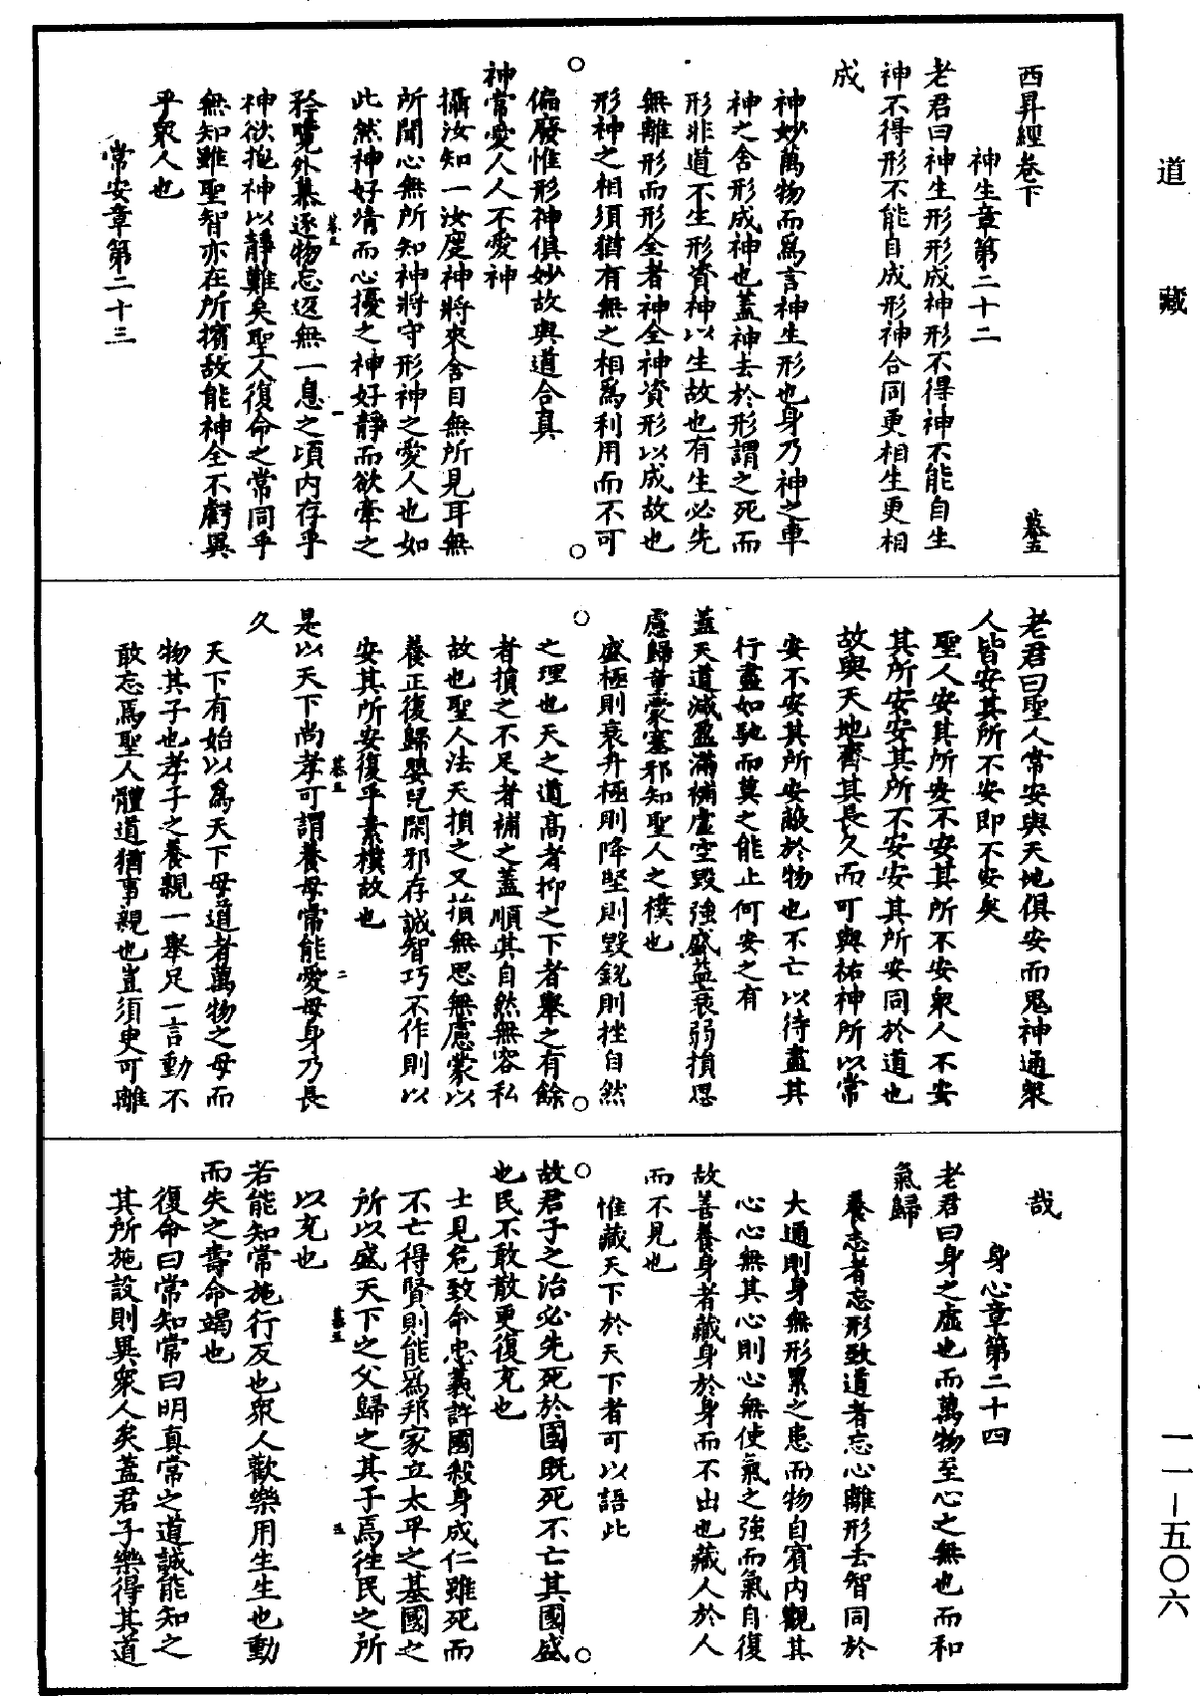 道藏
西昇經卷下
慕五
神生章第二十二
老君曰神生形形成神形不得神不能自生
神不得形不能自成形神合同更相生更相
成
神妙萬物而爲言神生形也身乃神之車
神之舍形成神也蓋神去於形謂之死而
形非道不生形資神以生故也有生必先
無離形而形全者神全神資形以成故也
形神之相須猶有無之相爲利用而不可
偏廢惟形神俱妙故與道合真
神常愛人人不愛神
攝汝知一汝度神將來舍目無所見耳無
所聞心無所知神將守形神之愛人也如
此然神好清而心擾之神好靜而欲牽之
慕五
一
矜覺外慕逐物忘返無一息之頃內存乎
神欲抱神以靜難矣聖人復命之常同乎
無知雖聖智亦在所擯故能神全不虧異
乎衆人也
常安章第二十三
老君曰聖人常安與天地俱安而鬼神通衆
人皆安其所不安即不安矣
聖人安其所安不安其所不安衆人不安
其所安安其所不安安其所安同於道也
故與天地齊其長久而可與祐神所以常
安不安其所安敵於物也不亡以待盡其
行盡如馳而莫之能止何安之有
蓋天道減盈滿補虛空毀強盛益衰弱損思
慮歸童蒙塞邪知聖人之樸也
盛極則衰升極則降堅則毀銳則挫自然
之理也天之道高者抑之下者舉之有餘
者損之不足者補之蓋順其自然無容私
故也聖人法天損之又損無思無慮蒙以
養正復歸嬰兒閑邪存誠智巧不作則以
安其所安復乎素樸故也
慕五
二
是以天下尚孝可謂養母常能愛母身乃長
久
天下有始以爲天下母道者萬物之母而
物其子也孝子之養親一舉足一言動不
敢忘焉聖人體道猶事親也豈須臾可離
哉
身心章第二十四
老君曰身之虛也而萬物至心之無也而和
氣歸
養志者忘形致道者忘心離形去智同於
大通則身無形累之患而物自賓內觀其
心心無其心則心無使氣之強而氣自復
故善養身者藏身於身而不出也藏人於人
而不見也
惟藏天下於天下者可以語此
故君子之治必先死於國既死不亡其國盛
也民不敢散更復充也
士見危致命忠義許國殺身成仁雖死而
不亡得賢則能爲邦家立太平之基國之
所以盛天下之父歸之其子焉往民之所
慕五
三
以充也
若能知常施行反也衆人歡樂用生生也動
而失之壽命竭也
復命曰常知常曰明真常之道誠能知之
其所施設則異衆人矣蓋君子樂得其道
一一—五〇六